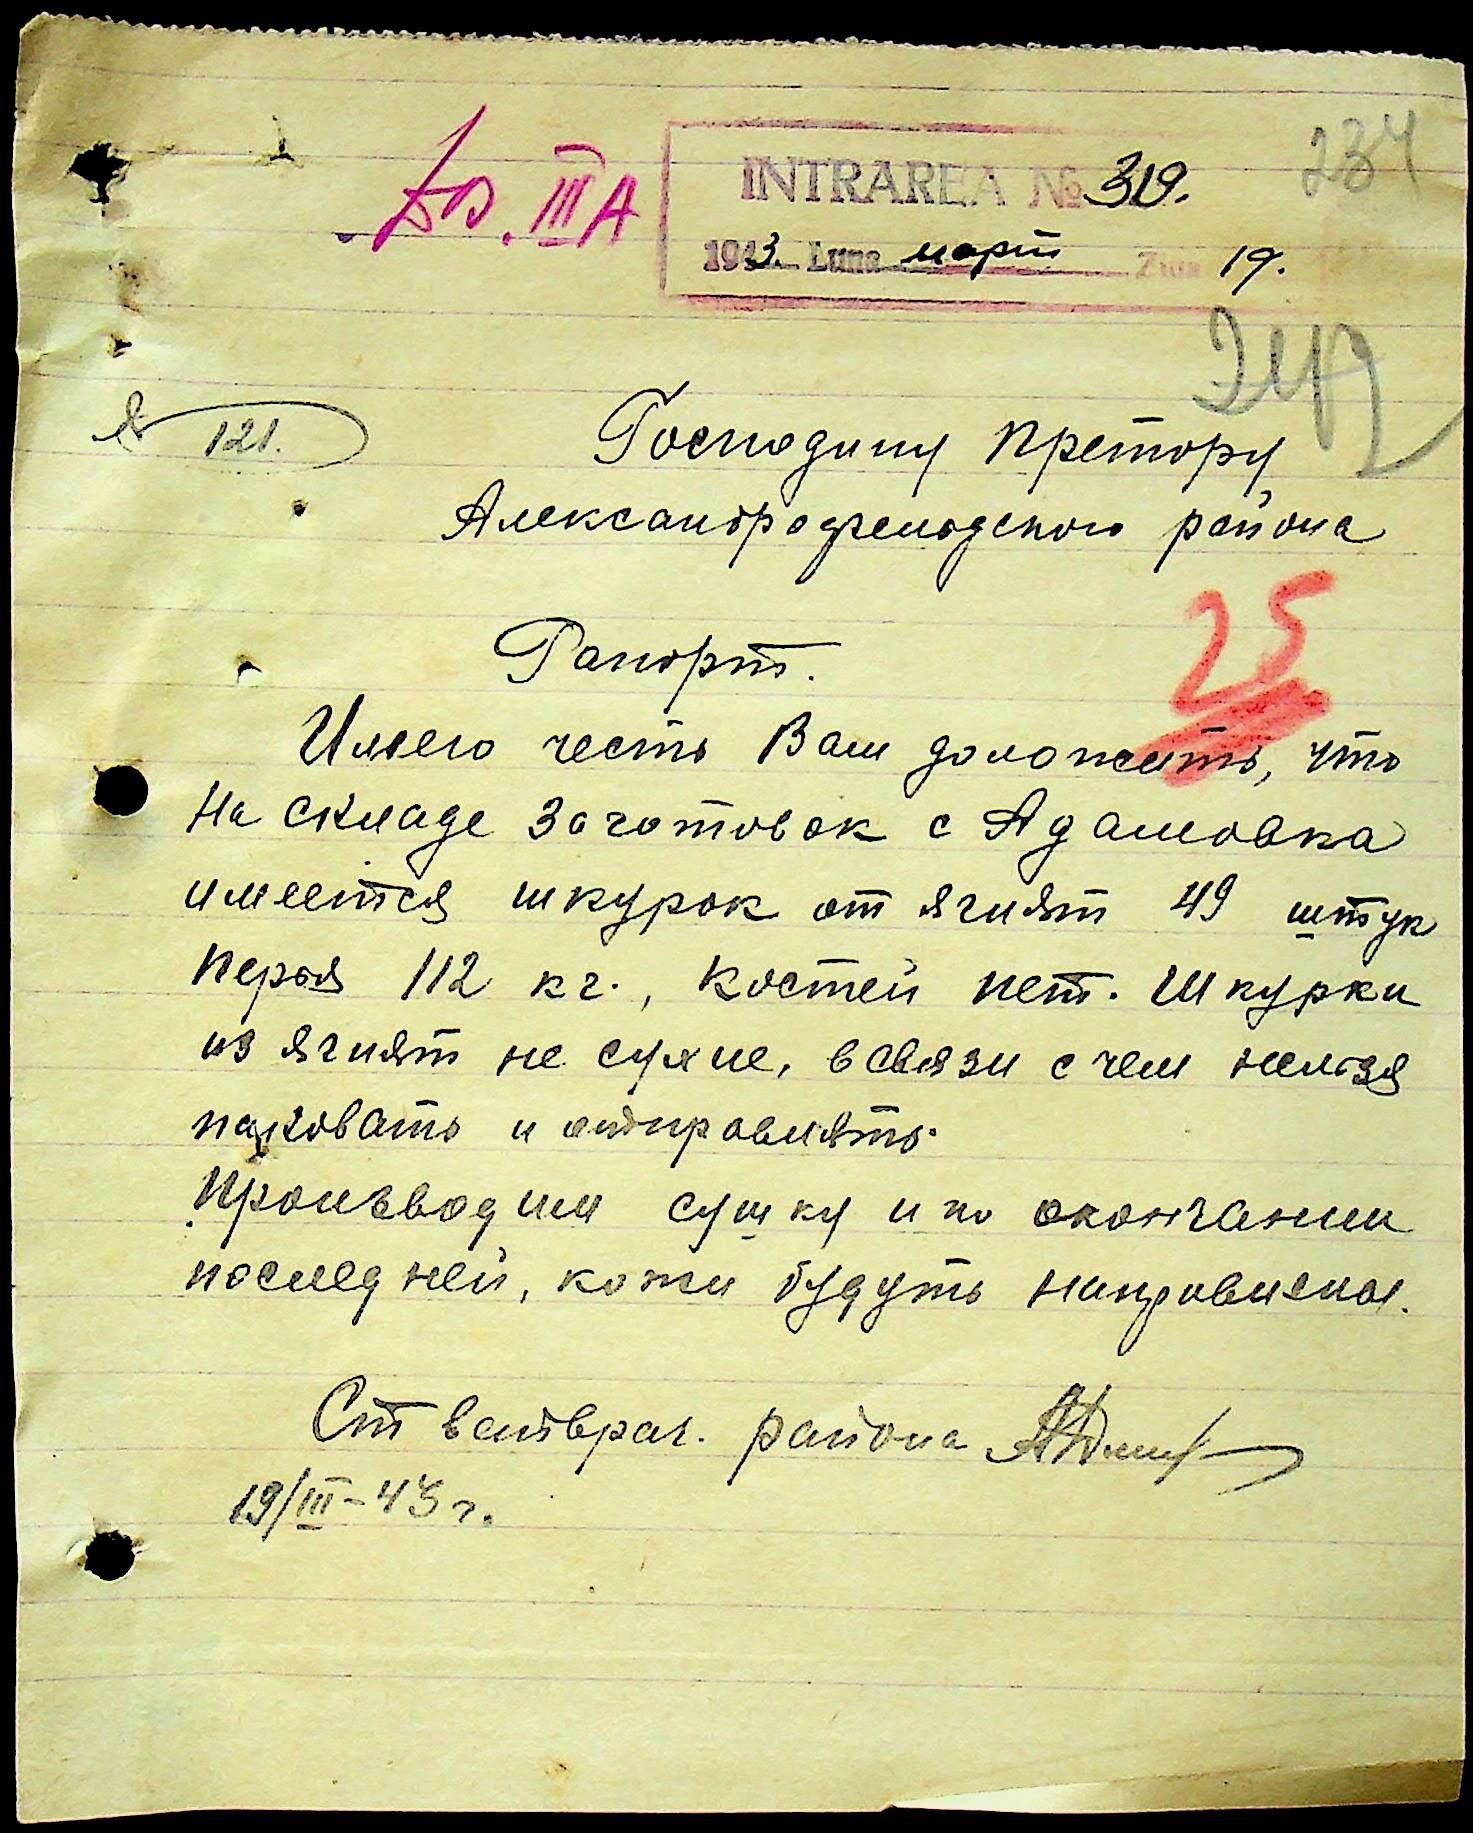 III A
INTRAREA № 319.
1943. Luna март Ziua 19.
234
№ 121.
Господину Претору
Александродгемодского района
25
Рапорт.
Имею честь Вам доложить, что
на складе заготовок с Адамовка
имеется шкурок от ягнят 49 штук
перья 112 кг., костей нет. Шкурки
из ягнят не сухие, в связи с чем нельзя
паковать и отправлять.
Производим сушку и по окончании
последней, кожи будуть направлены.
Ст ветврач. района
19/III-43 г.